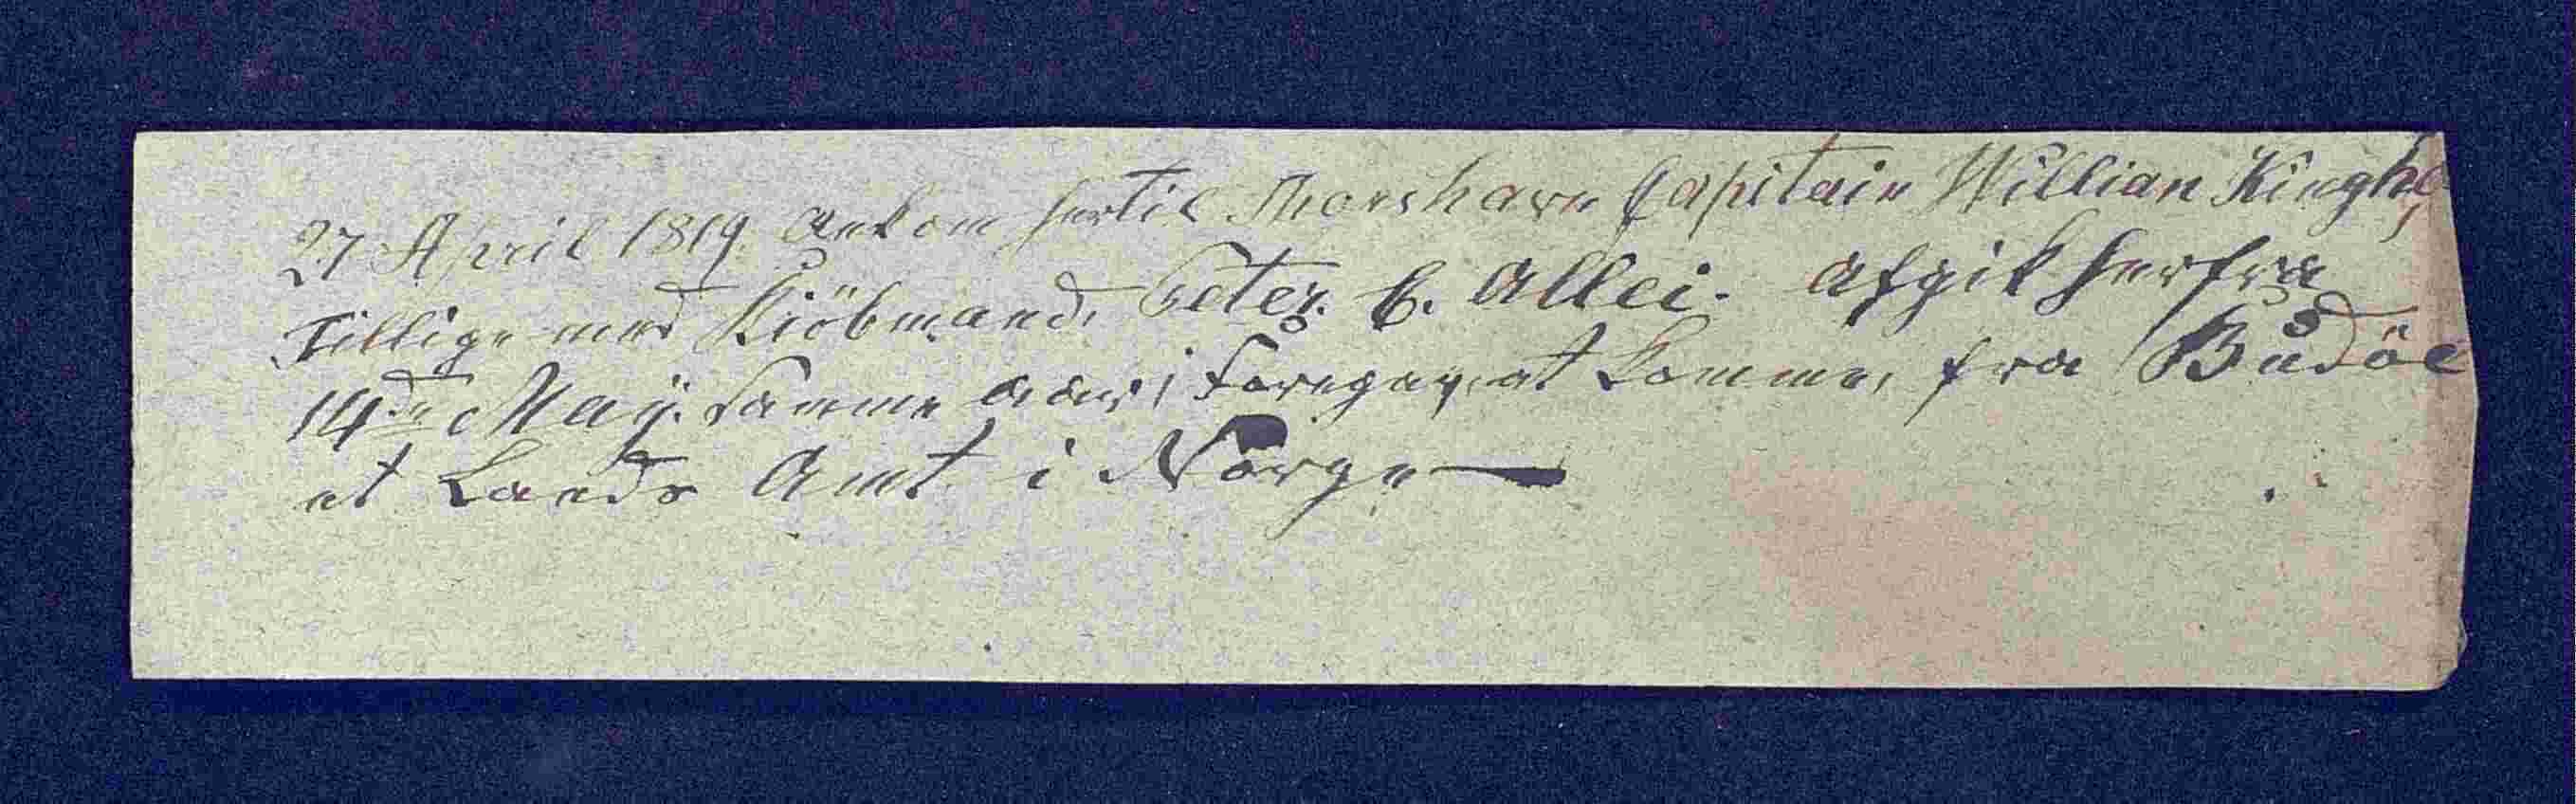 27 April 1819 Ankom hertil Thorshavn Capitain Willian Kingho
Tillige med Kiöbmand, Peter. C. Allei. Afgik herfra
14de Maÿ. samme Aar, foregav, at komme, fra Budöe
et Lands Amt i Norge —